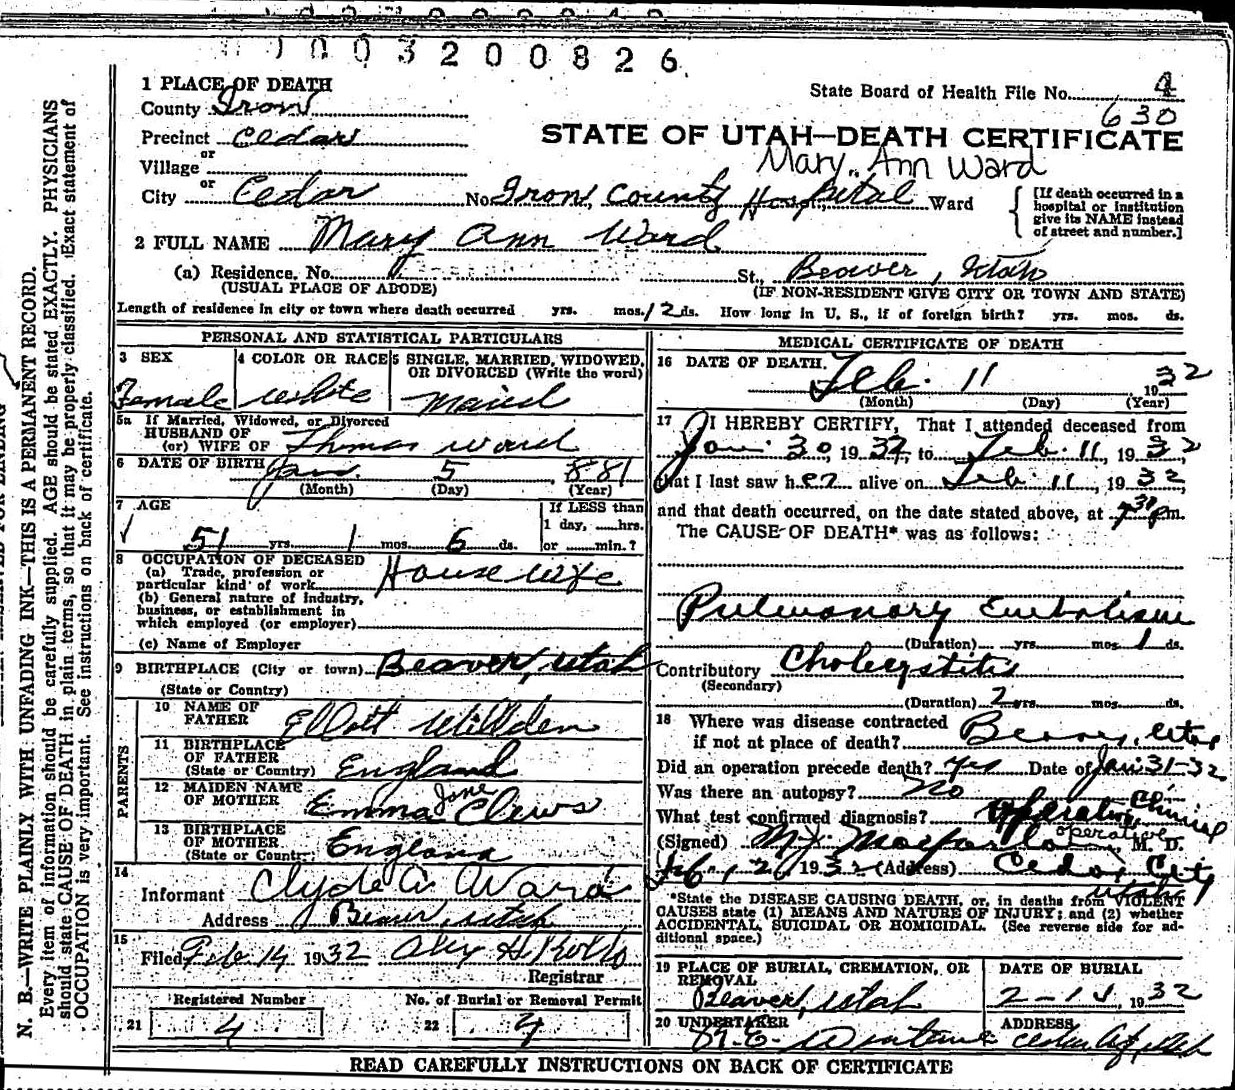 0 0 3 2 0 0 8 2 6
1 PLACE OF DEATH
State Board of Health File No. 4
County Iron
630
Precinct Cedar
STATE OF UTAH—DEATH CERTIFICATE
or
Village
Mary Ann Ward
or
City Cedar No. Iron County Hospital Ward
[If death occurred in a hospital or institution give its NAME instead of street and number.]
2 FULL NAME Mary Ann Ward
(a) Residence. No. St., Beaver, Utah
(USUAL PLACE OF ABODE) (IF NON-RESIDENT GIVE CITY OR TOWN AND STATE)
Length of residence in city or town where death occurred yrs. mos. 12 ds. How long in U. S., if of foreign birth? yrs. mos. ds.
PERSONAL AND STATISTICAL PARTICULARS
3 SEX
Female
4 COLOR OR RACE
White
5 SINGLE, MARRIED, WIDOWED, OR DIVORCED (Write the word)
5a If Married, Widowed, or Divorced
HUSBAND OF
(or) WIFE OF Thomas Ward
6 DATE OF BIRTH Jan. 5, 881
(Month) (Day) (Year)
7 AGE
If LESS than
1 day, hrs.
51 yrs. 1 mos. 6 ds. or min.?
8 OCCUPATION OF DECEASED
(a) Trade, profession or
particular kind of work House wife
(b) General nature of industry,
business, or establishment in
which employed (or employer)
(c) Name of Employer
9 BIRTHPLACE (City or town) Beaver, Utah
(State or Country)
PARENTS
10 NAME OF
FATHER Ellott Willden
11 BIRTHPLACE
OF FATHER
(State or Country) England
12 MAIDEN NAME
OF MOTHER Emma Jane Clews
13 BIRTHPLACE
OF MOTHER
(State or Country) England
14
Informant Clyde A. Ward
Address Beaver, Utah
15
Filed Feb. 14 1932
Registrar
Registered Number
21 4
No. of Burial or Removal Permit
22 4
MEDICAL CERTIFICATE OF DEATH
16 DATE OF DEATH.
Feb. 11 1932
(Month) (Day) (Year)
17 I HEREBY CERTIFY, That I attended deceased from
Jan. 30, 1932, to Feb. 11, 1932
that I last saw her alive on Feb 11, 1932,
and that death occurred, on the date stated above, at 7:30 pm.
The CAUSE OF DEATH* was as follows:
Pulmonary Embolism
(Duration) yrs. mos. 1 ds.
Contributory Cholecystitis
(Secondary)
(Duration) 2 yrs. mos. ds.
18 Where was disease contracted
if not at place of death? Beaver, Utah
Did an operation precede death? Yes Date of Jan 31-32
Was there an autopsy? No
Clinical
What test confirmed diagnosis? Operative
operative
(Signed) M. D.
1932 (Address) Cedar City
Utah
*State the DISEASE CAUSING DEATH, or, in deaths from VIOLENT
CAUSES state (1) MEANS AND NATURE OF INJURY; and (2) whether
ACCIDENTAL, SUICIDAL OR HOMICIDAL. (See reverse side for ad-
ditional space.)
19 PLACE OF BURIAL, CREMATION, OR
REMOVAL
Beaver, Utah
DATE OF BURIAL
2-14 1932
20 UNDERTAKER
ADDRESS
Cedar City, Utah
READ CAREFULLY INSTRUCTIONS ON BACK OF CERTIFICATE
N. B.—WRITE PLAINLY WITH UNFADING INK—THIS IS A PERMANENT RECORD.
Every item of information should be carefully supplied. AGE should be stated EXACTLY. PHYSICIANS
should state CAUSE OF DEATH in plain terms, so that it may be properly classified. Exact statement of
OCCUPATION is very important. See instructions on back of certificate.